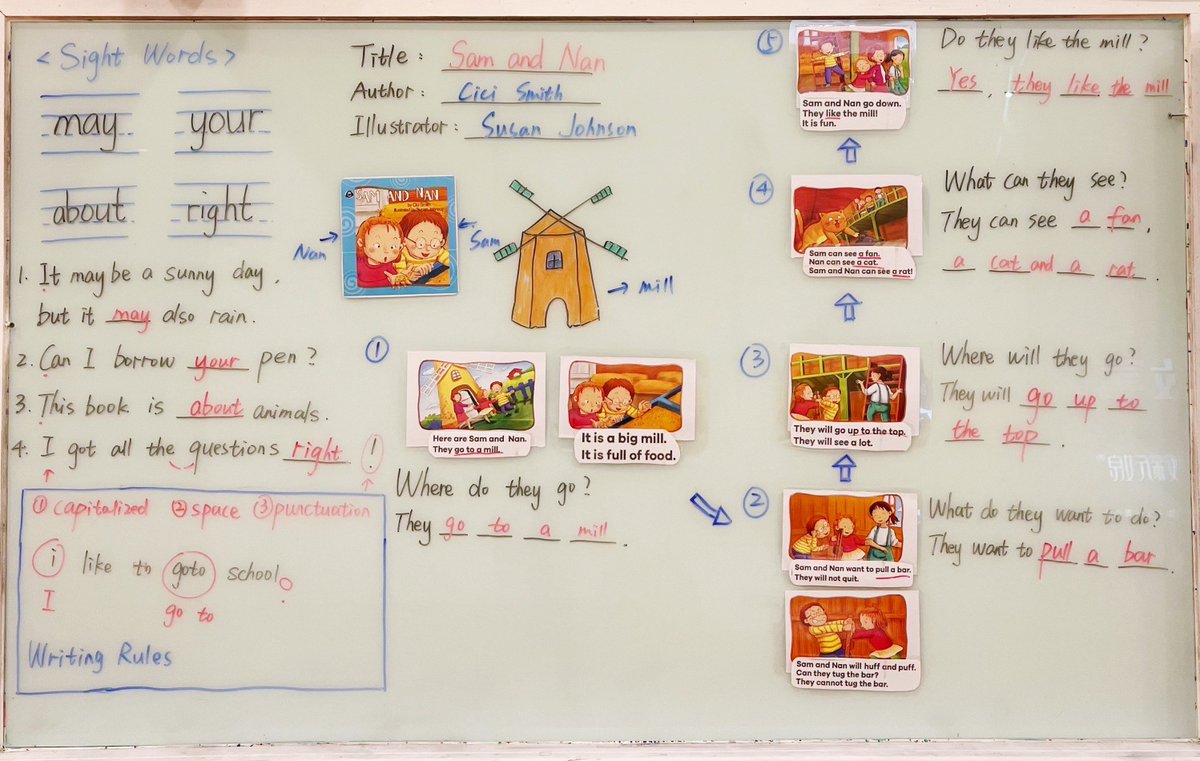 < Sight Words >
may your
about right
1. It may be a sunny day,
but it may also rain.
2. Can I borrow your pen?
3. This book is about animals.
4. I got all the questions right!
① capitalized ② space ③ punctuation
i like to goto school.
I go to
Writing Rules
Title: Sam and Nan
Author: Cici Smith
Illustrator: Susan Johnson
SAM AND NAN
Nan
Sam
mill
①
Here are Sam and Nan.
They go to a mill.
It is a big mill.
It is full of food.
Where do they go?
They go to a mill.
②
Sam and Nan want to pull a bar.
They will not quit.
Sam and Nan will huff and puff.
Can they tug the bar?
They cannot tug the bar.
What do they want to do?
They want to pull a bar.
③
They will go up to the top.
They will see a lot.
Where will they go?
They will go up to
the top.
④
Sam can see a fan.
Nan can see a cat.
Sam and Nan can see a rat!
What can they see?
They can see a fan,
a cat and a rat.
⑤
Sam and Nan go down.
They like the mill!
It is fun.
Do they like the mill?
Yes, they like the mill